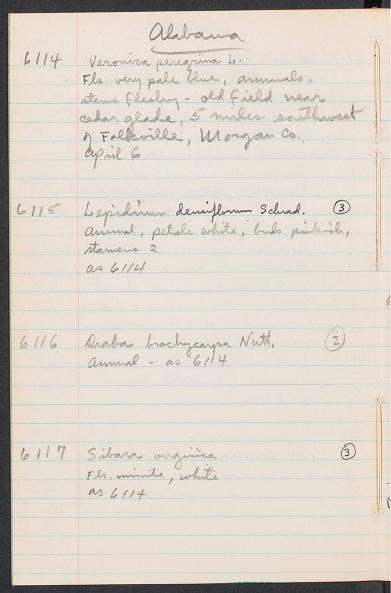 Alabama
6114 Veronica peregrina L.
Fls. very pale blue, annuals,
stems fleshy - old field near
cedar glade, 5 miles southwest
of Falkville, Morgan Co.,
April 6
6115 Lepidium densiflorum Schrad. 3
annual, petals white, buds pinkish,
stamens 2
as 6114
6116 Draba brachycarpa Nutt. 2
annual - as 6114
6117 Sibara virginica 3
Fls. minute, white
as 6114